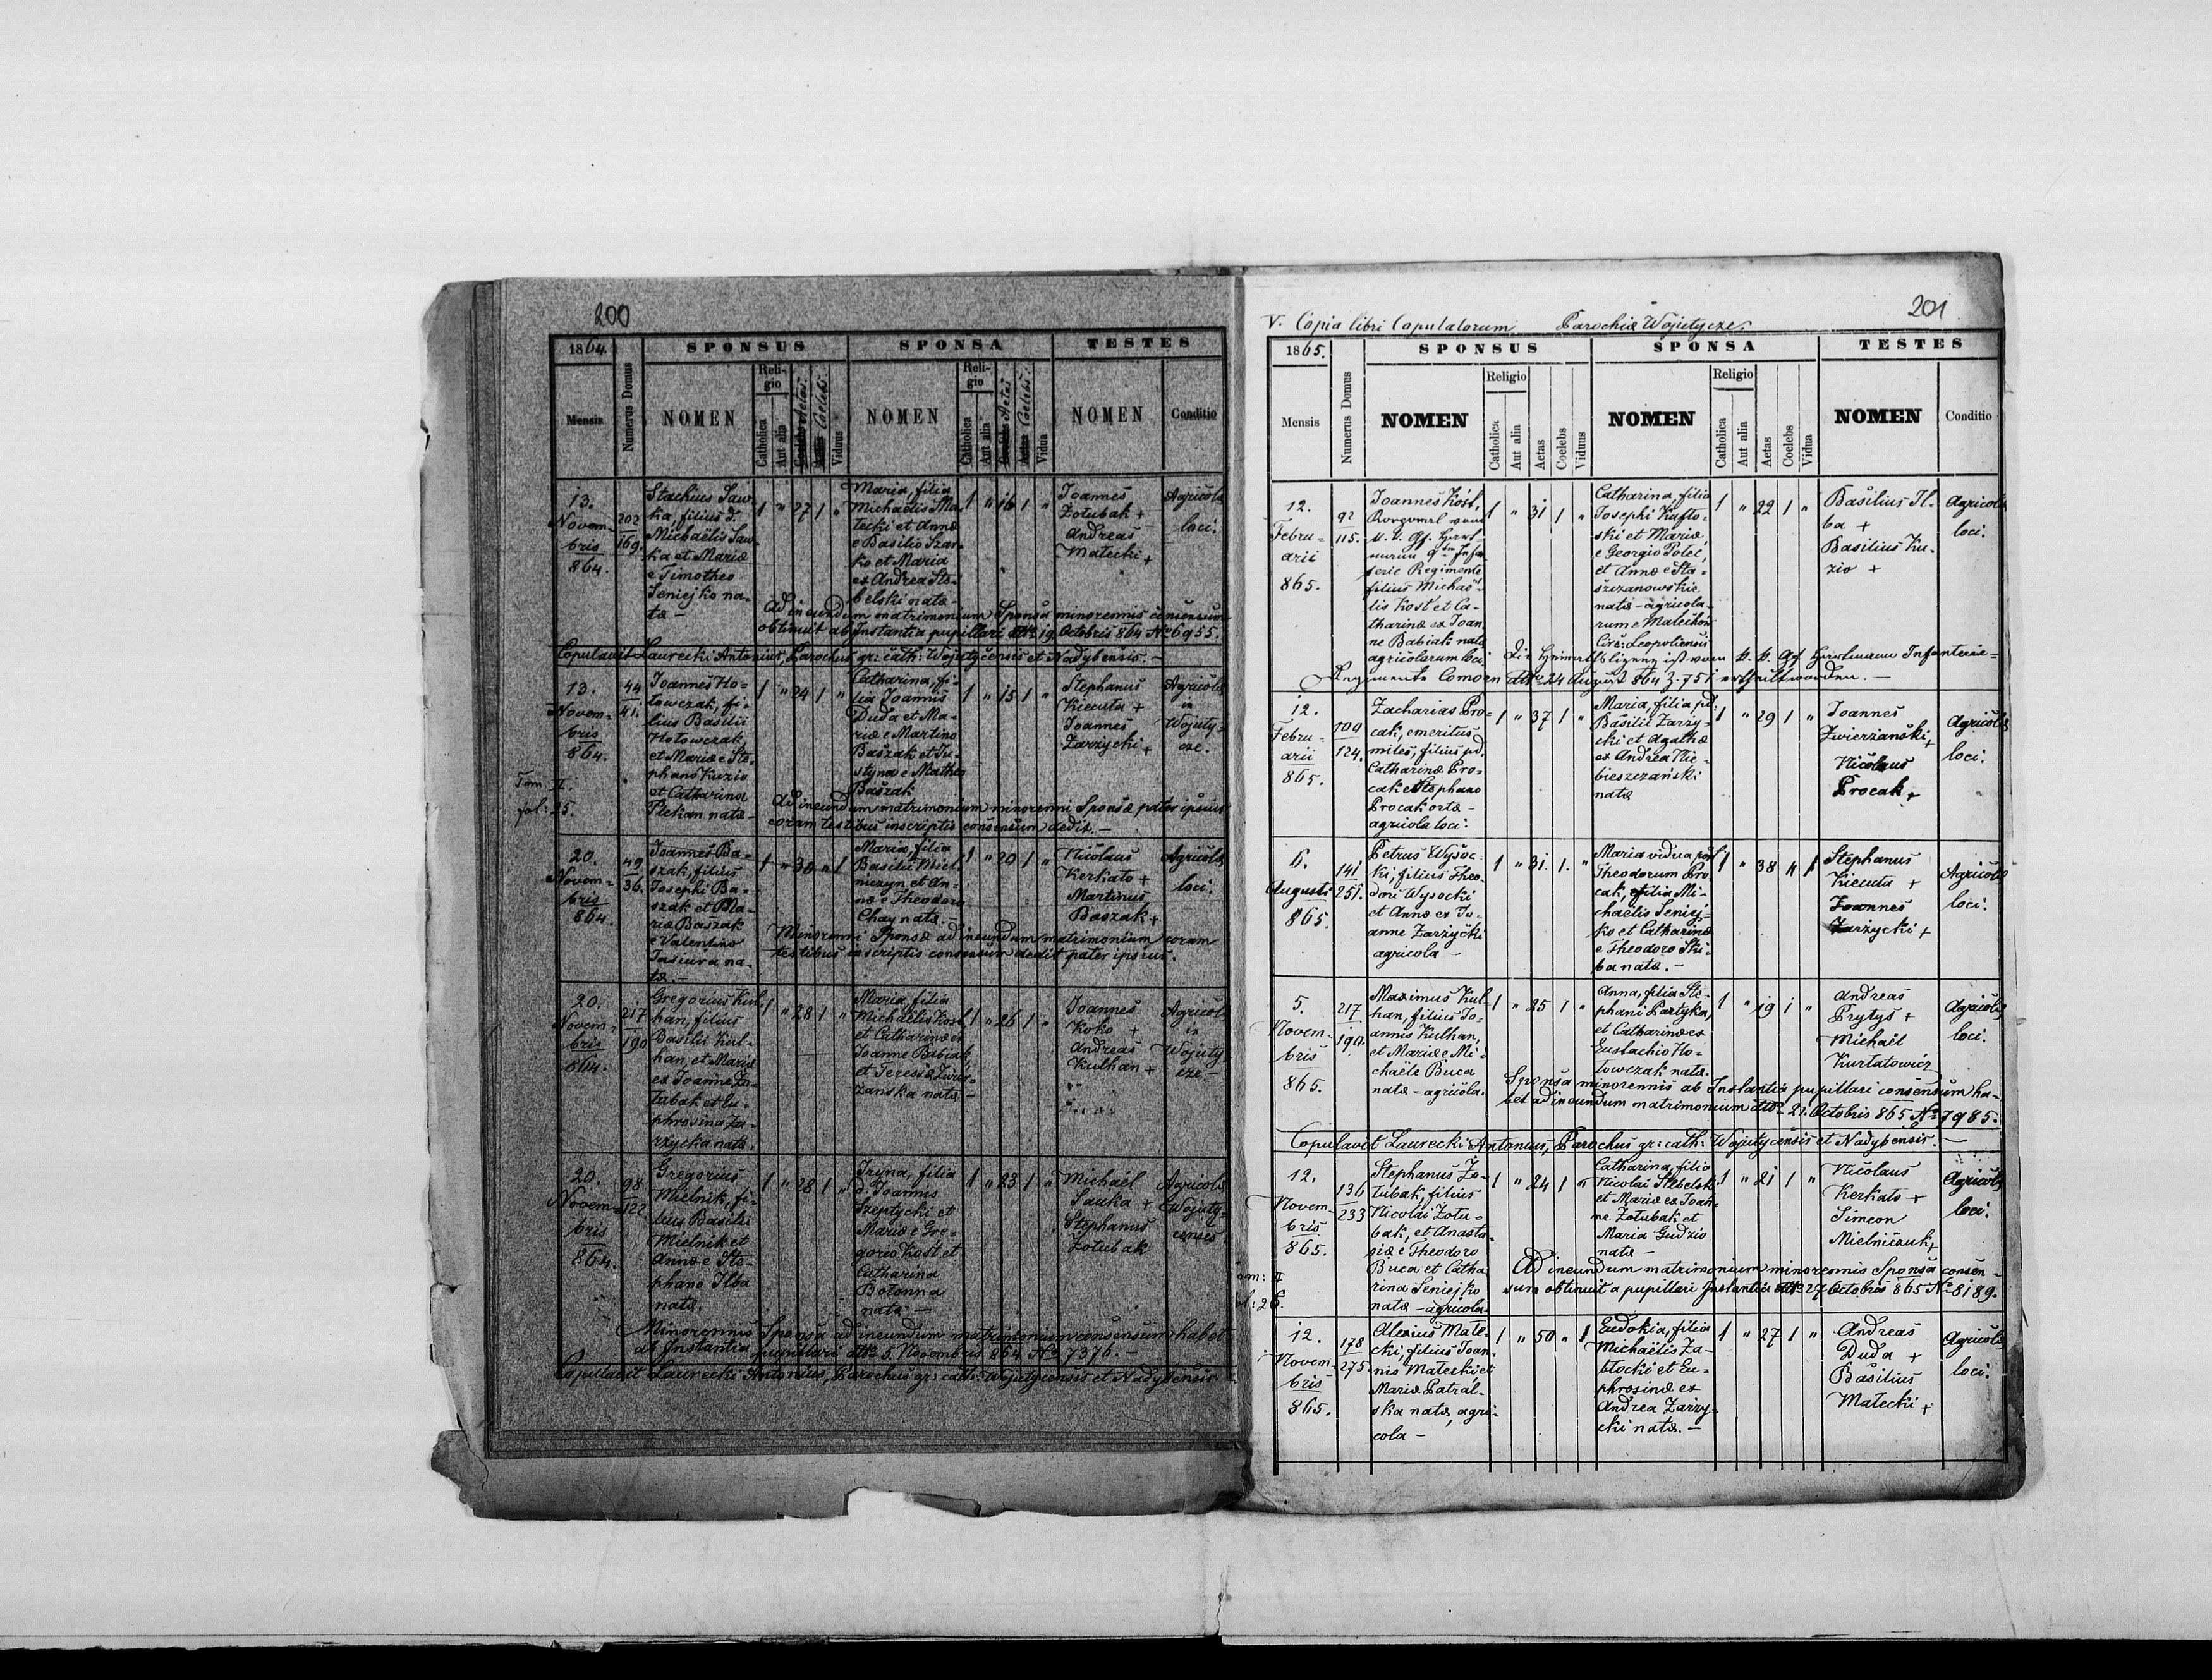 200
1864.
SPONSUS
SPONSA
TESTES
Mensis
Numerus Domus
NOMEN
Religio
Catholica
Aut alia
Aetas
Coelebs
Viduus
NOMEN
Religio
Catholica
Aut alia
Aetas
Coelebs
Vidua
NOMEN
Conditio
13.
Novem-
bris
864.
202
169.
Stachius Saw
ka, filius d.
Michaëlis Saw-
ka et Mariæ
e Timotheo
Seniejko na-
tæ -
1 " 27 1 "
Maria, filia
Michaëlis Ma-
tecki et Annæ
e Basilio Szar-
ko et Maria
ex Andrea Ste-
belski natæ -
1 " 16 1 "
Joannes
Zotubak +
Andreas
Matecki +
Agricolæ
loci.
Ad ineundum matrimonium Sponsa minorennis consensum
obtinuit ab Instantia pupillari ddto 19. Octobris 864 No 6955.
Copulavit Laurecki Antonius, Parochus gr: cath: Wojutycensis et Nadybensis. -
13.
Novem-
bris
864.
44
41.
Joannes Ho-
towczak, fi-
lius Basilii
Hotowczak,
et Mariæ e Ste-
phano Kuzio
et Catharina
Plekan natæ -
1 " 24 1 "
Catharina, fi-
lia Joannis
Duda et Ma-
riæ e Martino
Baszak et Ju-
styna e Matheo
Baszak
1 " 15 1 "
Stephanus
Kiecuta +
Joannes
Zarzycki +
Agricolæ
in
Wojuty-
cze.
Tom. II.
fol: 25.
Ad ineundum matrimonium minorenni Sponsæ pater ipsius
coram testibus inscriptis consensum dedit. -
20.
Novem-
bris
864.
49
36.
Joannes Ba-
szak, filius
Josephi Ba-
szak et Ma-
riæ Baszak
e Valentino
Jasiura na-
tæ -
1 " 30 " 1
Maria, filia
Basilii Miel-
niczyn et An-
næ e Theodoro
Chay natæ. -
1 " 20 1 "
Nicolaus
Kerkato +
Martinus
Baszak +
Agricolæ
loci.
Minorenni Sponsæ ad ineundum matrimonium coram
testibus inscriptis consensum dedit pater ipsius.
20.
Novem-
bris
864.
217
190
Gregorius Kul-
han, filius
Basilii Kul-
han, et Mariæ
ex Joanne Zo-
tubak et Eu-
phrosina Za-
rzycka natæ.
1 " 28 1 "
Maria, filia
Michaëlis Kost
et Catharinæ ex
Joanne Babiak,
et Teresiæ Zwier-
zanska natæ -
1 " 26 1 "
Joannes
Koko +
Andreas
Kulhan +
Agricolæ
in
Wojuty
cze. -
20.
Novem-
bris
864.
98
122
Gregorius
Mielnik, fi-
lius Basilii
Mielnik et
Annæ e Ste-
phano Ilba
natæ.
1 " 28 1 "
Iryna, filia
d. Joannis
Szeptycki et
Mariæ e Gre-
gorio Kost et
Catharina
Botonna
natæ -
1 " 23 1 "
Michaël
Sauka +
Stephanus
Zotubak
Agricolæ
Wojuty-
censes
Minorennis Sponsa ad ineundum matrimonium consensum habet
ab Instantia pupillari ddto 5. Novembris 864 No 7376. -
Copulavit Laurecki Antonius, Parochus gr: cath: Wojutycensis et Nadybensis
201
V. Copia libri Copulatorum Parochiæ Wojutycze.
1865.
SPONSUS
SPONSA
TESTES
Mensis
Numerus Domus
NOMEN
Religio
Catholica
Aut alia
Aetas
Coelebs
Viduus
NOMEN
Religio
Catholica
Aut alia
Aetas
Coelebs
Vidua
NOMEN
Conditio
12.
Febru-
arii
865.
92
115.
Joannes Kost,
filius Michaë-
lis Kost et Ca-
tharinæ ex Joan
ne Babiak natæ
agricolarum loci
1 " 31 1 "
Catharina, filia
Josephi Kufto-
ski et Mariæ,
e Georgio Poleć,
et Annæ e Sta-
szczanowskie
natæ - agricola-
rum e Matechow
Circ: Leopoliensis
1 " 22 1 "
Basilius Il-
ba +
Basilius Ku-
zio +
Agricolæ
loci.
12.
Febru-
arii
865.
100
124.
Zacharias Pro-
cak, emeritus
miles, filius pd.
Catharinæ Pro-
cak e Stephano
Procak ortæ -
agricola loci.
1 " 37 1 "
Maria, filia pd:
Basilii Zarzy-
cki et Agathæ
ex Andrea Nie-
bieszczański
natæ
1 " 29 1 "
Joannes
Zwierżanski, +
Nicolaus
Procak +
Agricolæ
loci.
6.
Augusti
865.
141
251.
Petrus Wysoc-
ki, filius Theo-
dori Wysocki
et Annæ ex Jo-
anne Zarzycki
agricola -
1 " 31. 1. "
Maria vidua post
Theodorum Pro
cak, filia Mi-
chaëlis Seniej-
ko et Catharinæ
e Theodoro Ski-
ba nata. -
1 " 38 " 1
Stephanus
Kiecuta +
Joannes
Zarzycki +
Agricolæ
loci.
5.
Novem-
bris
865.
217
190.
Maximus Kul-
han, filius Jo-
annis Kulhan,
et Mariæ e Mi-
chaële Buca
natæ - agricola.
1 " 25 1 "
Anna, filia Ste-
phani Partyka,
et Catharinæ ex
Eustachio Ho-
towczak natæ.
1 " 19 1 "
Andreas
Prytys +
Michaël
Kurtatowicz
Agricolæ
loci.
Sponsa minorennis ab Instantia pupillari consensum ha-
bet ad ineundum matrimonium ddto 21. Octobris 865 No 7985.
Copulavit Laurecki Antonius, Parochus gr: cath: Wojutycensis et Nadybensis. -
12.
Novem-
bris
865.
136
233
Stephanus Zo-
tubak, filius
Nicolai Zotu-
bak, et Anasta-
siæ e Theodoro
Buca et Catha
rina Seniejko
natæ - agricola.
1 " 24 1 "
Catharina, filia
Nicolai Stebelski
et Mariæ ex Joan-
ne Zotubak et
Maria Gudzio
natæ -
1 " 21 1 "
Nicolaus
Kerkato +
Simeon
Mielniczuk +
Agricolæ
loci.
Ad ineundum matrimonium minorennis Sponsa consen-
sum obtinuit a pupillari Instantia ddto 27 Octobris 865 No 8189.
12.
Novem-
bris
865.
178
275.
Alexius Mate-
cki, filius Joan-
nis Matecki et
Mariæ Patral-
ska natæ, agri-
cola -
1 " 50 " 1
Eudokia, filia
Michaëlis Za-
btocki et Eu-
phrosinæ ex
Andrea Zarzy-
cki natæ. -
1 " 27 1 "
Andreas
Duda +
Basilius
Matecki +
Agricolæ
loci.